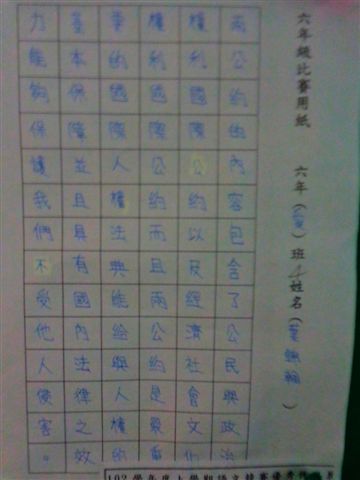 六年級比賽用紙 六年(愛)班4姓名(葉
兩公約的內容包含了公民與政治
權利國際公約以及經濟社會文化
權利國際公約而且兩公約是最重
要的國際人權法典能給與人權的
基本保障並且具有國內法律之效
力能夠保護我們不受他人侵害。
102學年度上學期語文競賽優秀作